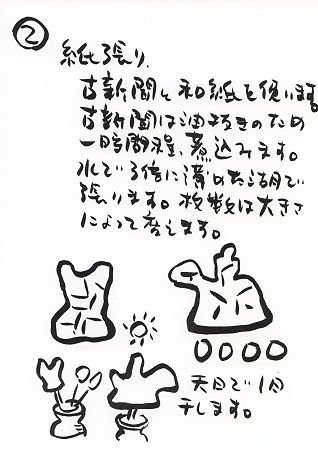 ②
紙張り.
古新聞と和紙を使います。
古新聞は油抜きのため
一時間程、煮込みます。
水で3倍に薄めた糊で
張ります。枚数は大きさ
によって変えます。
天日で1日
干します。